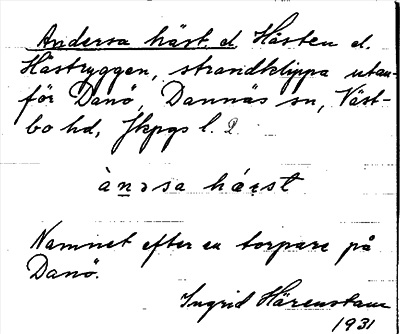 Andersa häst el. Hästen el.
Hästryggen, strandklippa utan-
för Danö, Dannäs sn, Väst-
bo hd, Jkpgs l.
ànəsa hást
Namnet efter en torpare på
Danö.
Ingrid Härenstam
1931